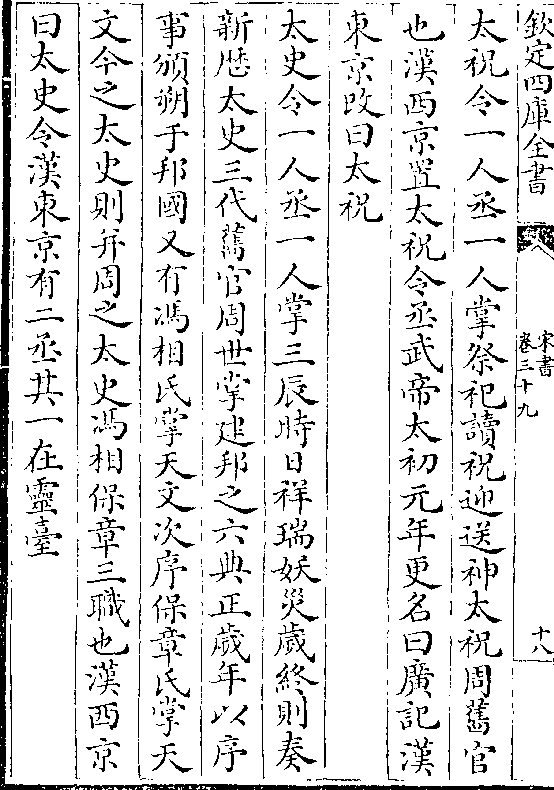 欽定四庫全書
宋書
卷三十九
十八
太祝令一人丞一人掌祭祀讀祝迎送神太祝周舊官
也漢西京置太祝令丞武帝太初元年更名曰廟記漢
東京改曰太祝
太史令一人丞一人掌三辰時日祥瑞妖災歲終則奏
新歴太史三代舊官周世掌建邦之六典正歲年以序
事頒朔于邦國又有馮相氏掌天文次序保章氏掌天
文今之太史則并周之太史馮相保章三職也漢西京
曰太史令漢東京有二丞其一在靈臺